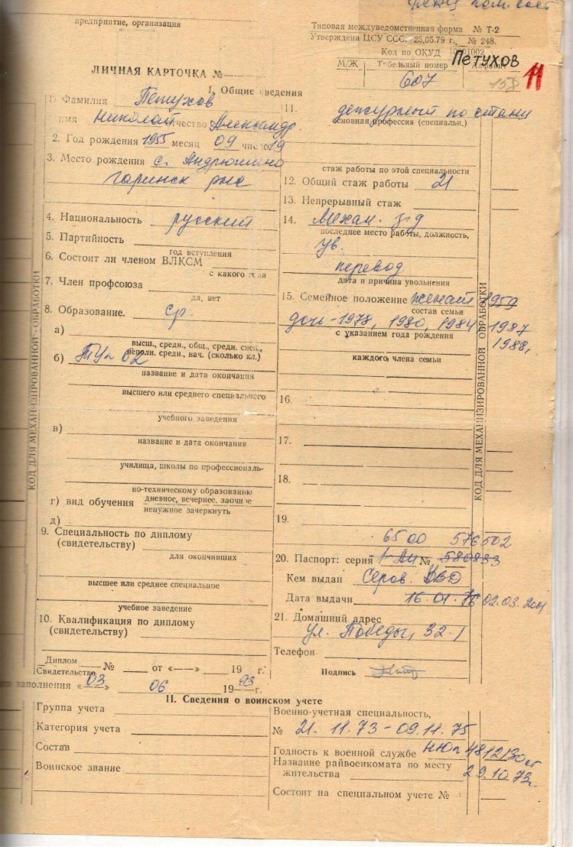 предприятие, организация
Типовая междуведомственная форма № Т-2
Утверждена ЦСУ СССР 25.05.79 г., № 248.
Код по ОКУД
Петухов
М/Ж Табельный номер
607
11
ЛИЧНАЯ КАРТОЧКА №
I. Общие сведения
1. Фамилия Петухов
имя Николай отчество Александр.
2. Год рождения 1955 месяц 09 число 19
3. Место рождения с. Андрюшино
гаринск р-на
4. Национальность русский
5. Партийность
год вступления
6. Состоит ли членом ВЛКСМ
с какого года
7. Член профсоюза
да, нет
8. Образование: ср.
а)
высш., средн., общ., средн. спец.,
неполн. средн., нач. (сколько кл.)
б)
название и дата окончания
высшего или среднего специального
учебного заведения
в)
название и дата окончания
училища, школы по профессиональ-
но-техническому образованию
г) вид обучения дневное, вечернее, заочное
ненужное зачеркнуть
д)
9. Специальность по диплому
(свидетельству)
для окончивших
высшее или среднее специальное
учебное заведение
10. Квалификация по диплому
(свидетельству)
Диплом
Свидетельство № от «—» 19 г.
заполнения «03 06 1993 г.
11. дежурный по станц
основная профессия (специальн.)
стаж работы по этой специальности
12. Общий стаж работы 21
13. Непрерывный стаж
14. Механ. з-д
последнее место работы, должность,
ув.
перевод
дата и причина увольнения
15. Семейное положение женат 1959
состав семьи
доч-1978, 1980, 1984, 1987
с указанием года рождения
1988,
каждого члена семьи
16.
17.
18.
19.
6500 576502
20. Паспорт: серия № 580833
Кем выдан Серов. УВД
Дата выдачи 16.01.76 02.03.2001
21. Домашний адрес
ул. Победы, 32-1
Телефон
Подпись
КОД ДЛЯ МЕХАНИЗИРОВАННОЙ ОБРАБОТКИ
КОД ДЛЯ МЕХАНИЗИРОВАННОЙ ОБРАБОТКИ
II. Сведения о воинском учете
Группа учета
Категория учета
Состав
Воинское звание
Военно-учетная специальность,
№ 21.11.73 - 09.11.75
Годность к военной службе
Название райвоенкомата по месту
жительства 29.10.73г.
Состоит на специальном учете №